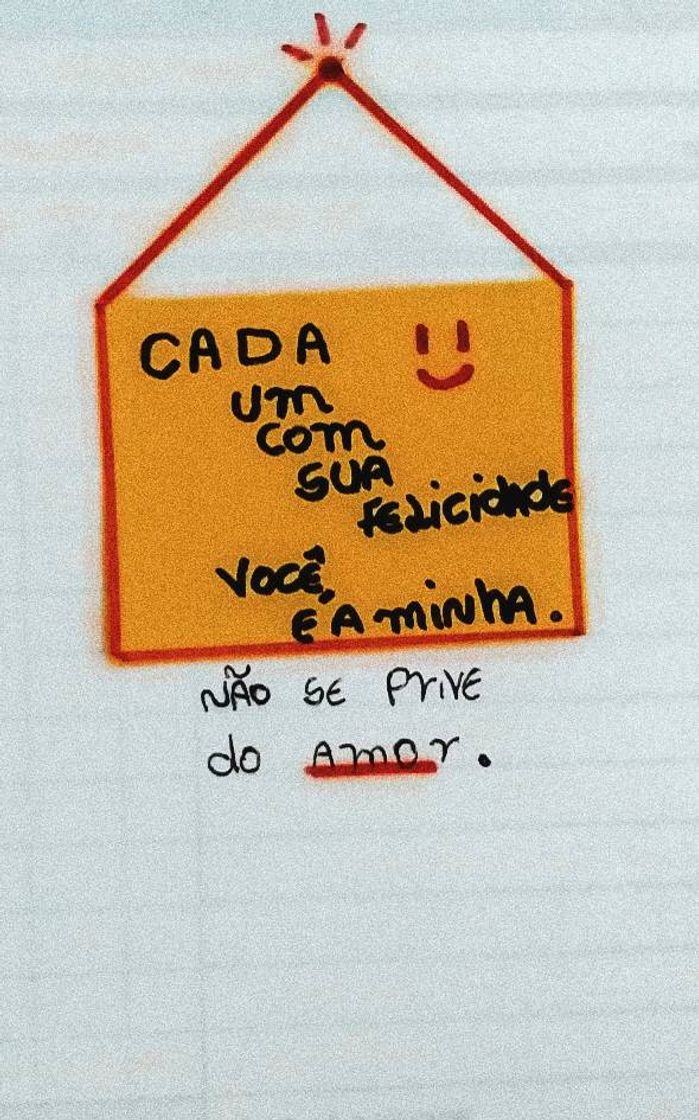 CADA
um
com
SUA
FELICIDADE
VOCÊ,
E A MINHA.
NÃO SE PRIVE
do AMOr.